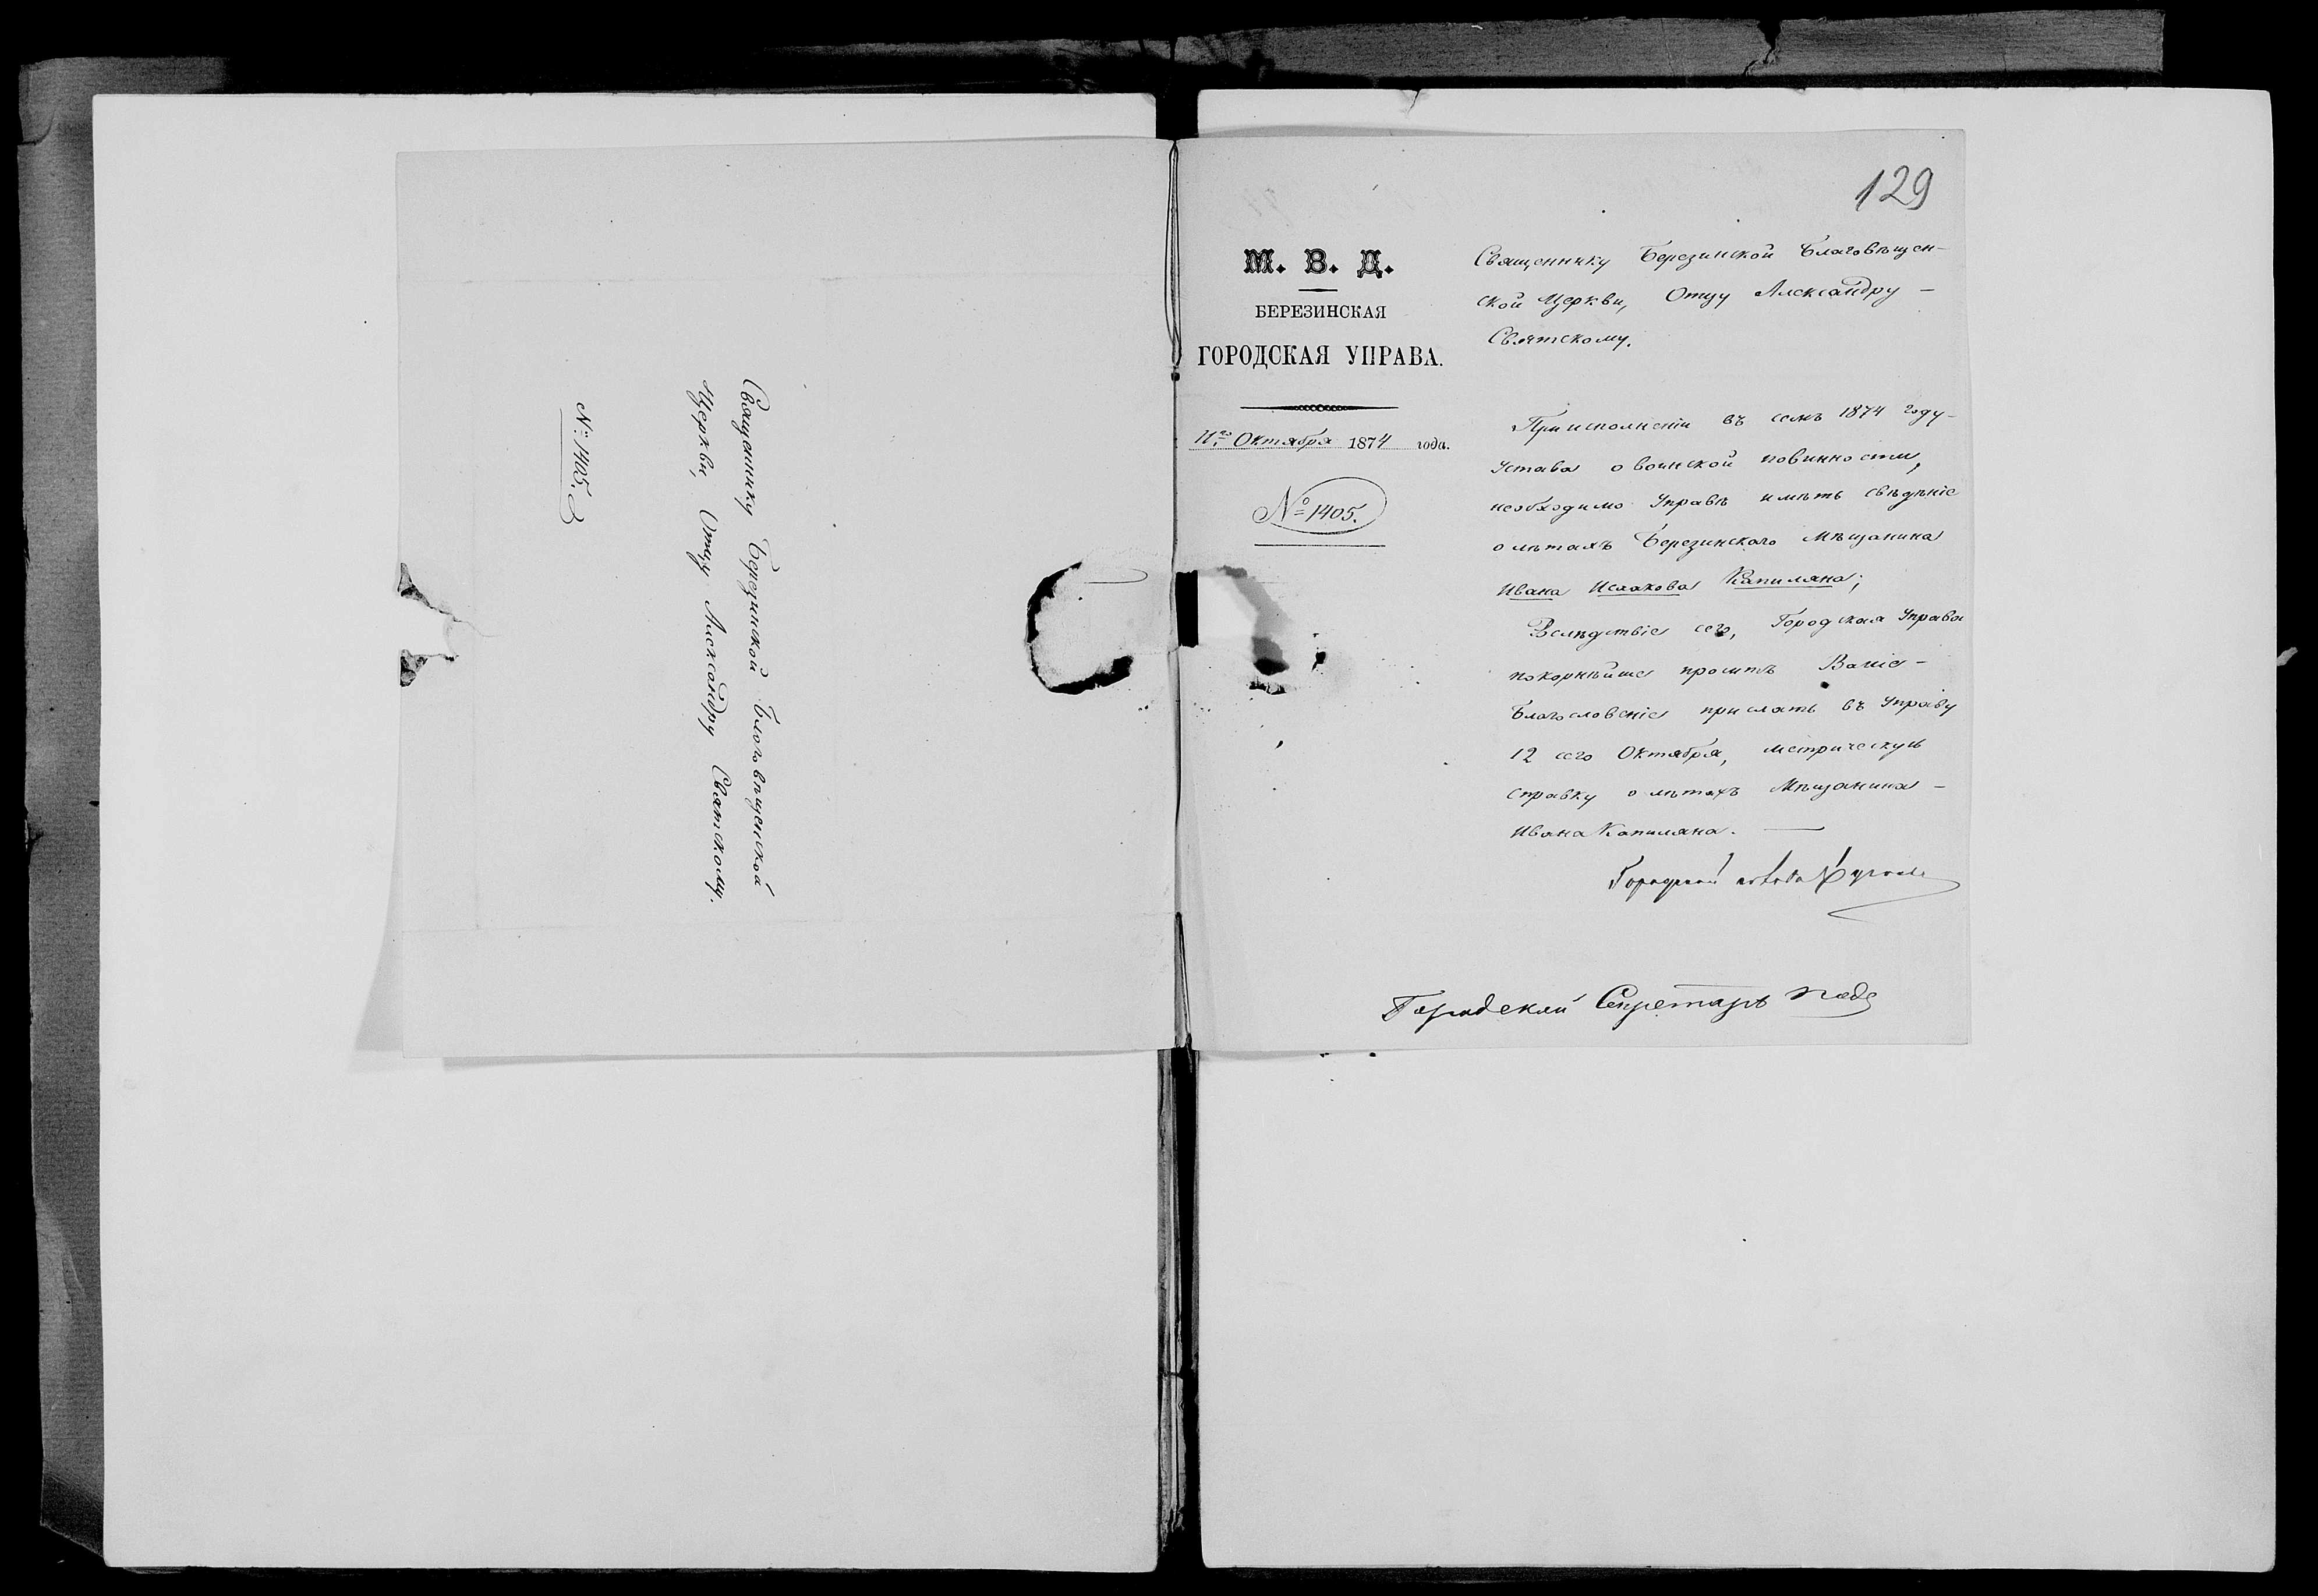 Священнику Березинской Благовѣщенской
Церкви, Отцу Александру Святскому.
№ 1405.
129
М. В. Д.
БЕРЕЗИНСКАЯ
ГОРОДСКАЯ УПРАВА.
11го Октября 1874 года.
№ 1405.
Священнику Березинской Благовѣщен-
ской Церкви, Отцу Александру -
Святскому.
При исполненіи въ семъ 1874 году -
Устава о воинской повинности,
необходимо Управѣ имѣть свѣдѣніе
о лѣтахъ Березинскаго Мѣщанина
Ивана Исаакова Капиляна;
Вслѣдствіе сего, Городская Управа
покорнѣйше проситъ Ваше -
Благословеніе прислать въ Управу
12 сего Октября, метрическую
справку о лѣтахъ Мѣщанина -
Ивана Капиляна. —
Городской голова
Городской Секретарь